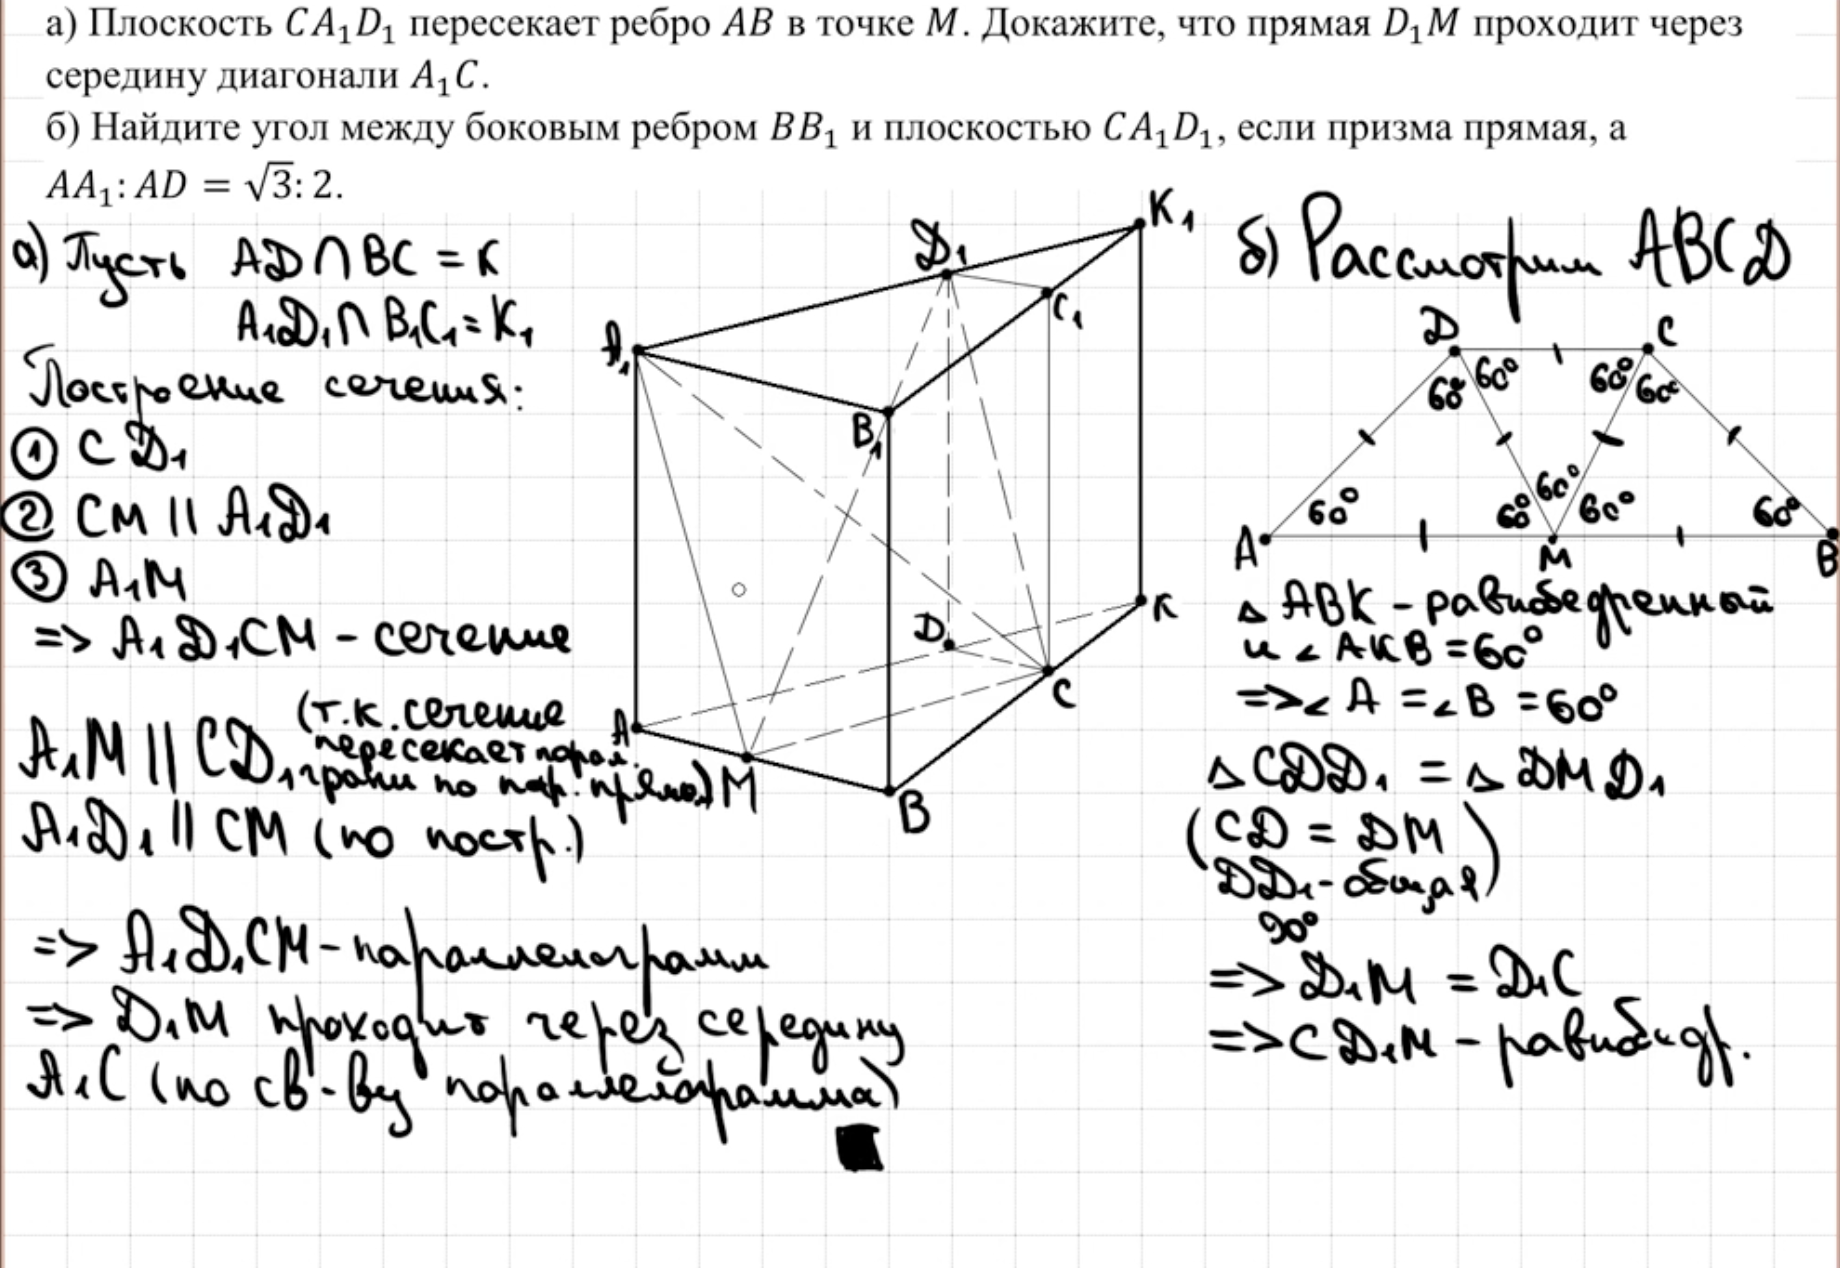 а) Плоскость CA₁D₁ пересекает ребро AB в точке M. Докажите, что прямая D₁M проходит через
середину диагонали A₁C.
б) Найдите угол между боковым ребром BB₁ и плоскостью CA₁D₁, если призма прямая, а
AA₁: AD = √3: 2.
а) Пусть AD ∩ BC = K
A₁D₁ ∩ B₁C₁ = K₁
Построение сечения:
① CD₁
② CM || A₁D₁
③ A₁M
=> A₁D₁CM - сечение
A₁M || CD₁ (т.к. сечение
пересекает парал.
грани по пар. прямой)
A₁D₁ || CM (по постр.)
=> A₁D₁CM - параллелограмм
=> D₁M проходит через середину
A₁C (по св-ву параллелограмма)
K₁
D₁
C₁
A₁
B₁
K
D
C
A
M
B
б) Рассмотрим ABCD
D C
60° 60° 60° 60°
60° 60° 60° 60° 60°
A M B
△ ABK - равнобедренный
и ∠ AKB = 60°
=> ∠ A = ∠ B = 60°
△ CDD₁ = △ DMD₁
(CD = DM
DD₁ - общая)
90°
=> D₁M = D₁C
=> CD₁M - равнобедр.